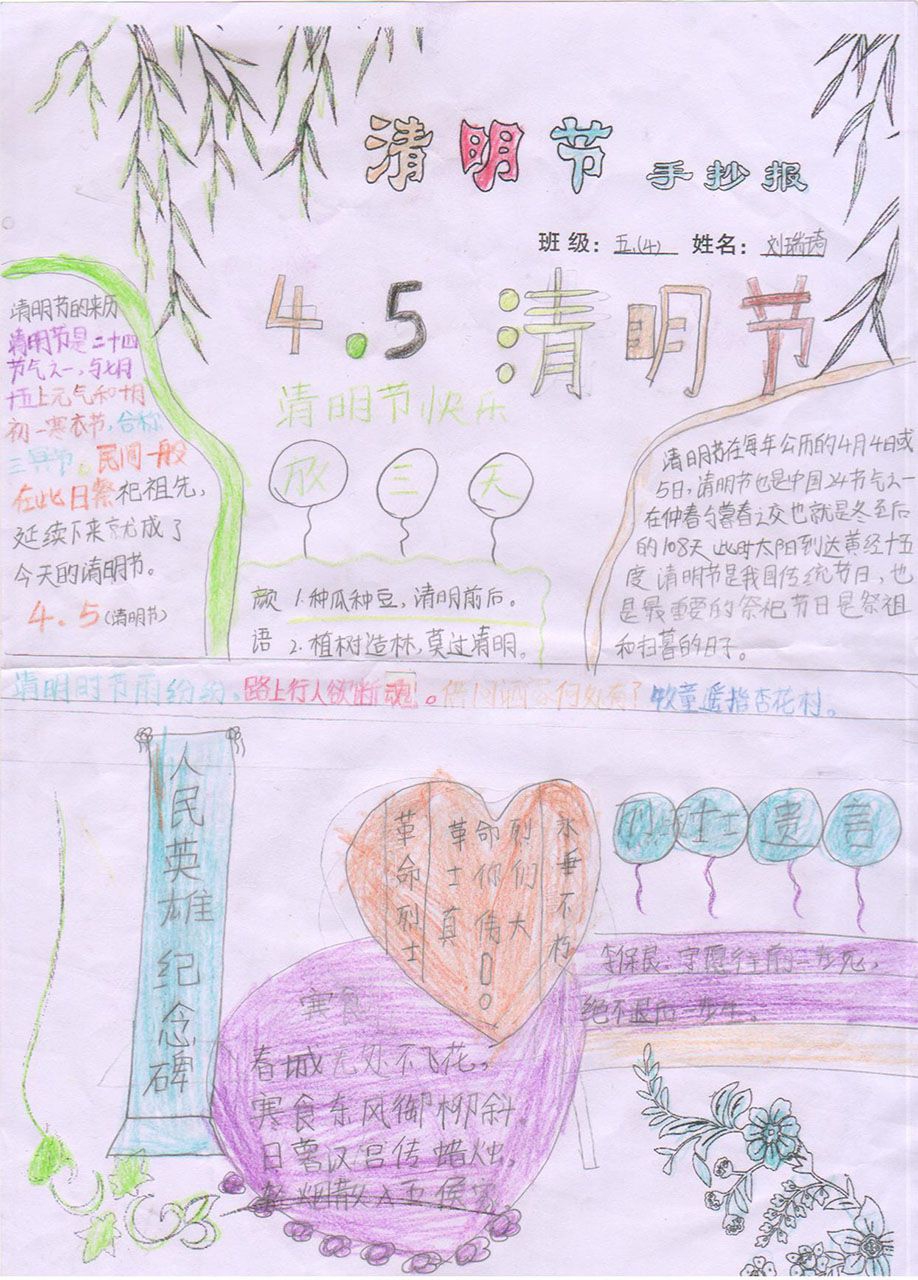 清明节 手抄报
班级：五.(4) 姓名：刘瑞琦
4.5 清明节
清明节快乐
放三天
清明节的来历
清明节是二十四
节气之一,与七月
十五上元气和十月
初一寒衣节,合称
三具节。民间一般
在此日祭祀祖先,
延续下来就成了
今天的清明节。
4.5(清明节)
颜 1.种瓜种豆,清明前后。
语 2.植树造林,莫过清明。
清明节在每年公历的4月4日或
5日,清明节也是中国24节气之一
在仲春与暮春之交也就是冬至后
的108天 此时太阳到达黄经十五
度 清明节是我国传统节日,也
是最重要的祭祀节日是祭祖
和扫墓的日子。
清明时节雨纷纷。路上行人欲断魂。借问酒家何处有?牧童遥指杏花村。
人民英雄纪念碑
革命烈士
革命烈
士你们
真伟大
!。
永垂不朽
烈士遗言
李保良:宁愿往前一步死,
绝不退后一步生。
寒食
春城无处不飞花,
寒食东风御柳斜.
日暮汉宫传蜡烛,
烟散入五侯家